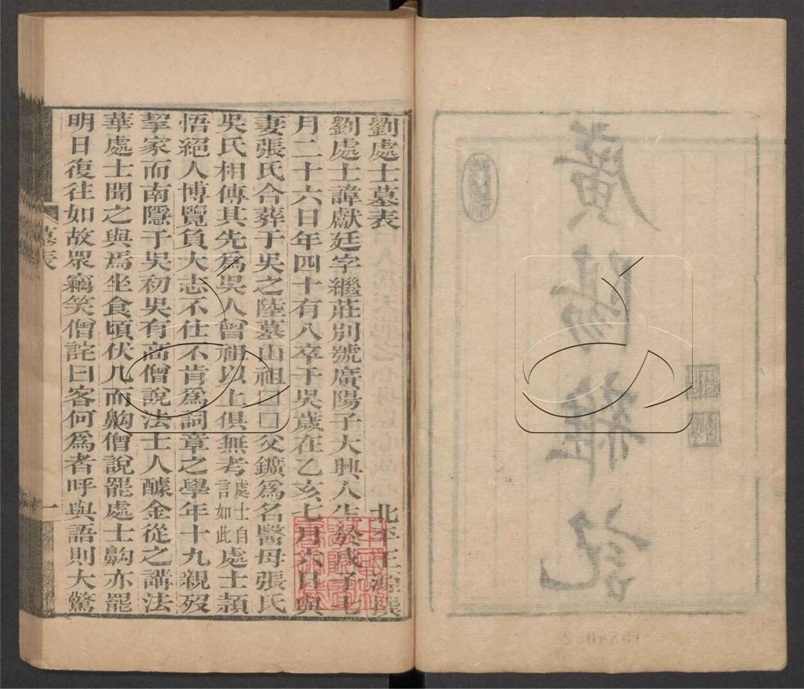 廣陽雜記
劉處士墓表
北平王源譔
劉處士諱獻廷字繼莊別號廣陽子大興人生於戊子七
月二十六日年四十有八卒于吳歲在乙亥七月六日與
妻張氏合葬于吳之陸墓山祖□□父鑛爲名醫母張氏
吳氏相傳其先爲吳人曾祖以上俱無考處士自言如此處士頴
悟絕人博覽負大志不仕不肯爲詞章之學年十九親歿
挈家而南隱于吳初吳有高僧說法士人醵金從之講法
華處士聞之與焉坐食頃伏几而鼾僧說罷處士鼾亦罷
明日復往如故眾竊笑僧詫曰客何爲者呼與語則大驚
墓表
一